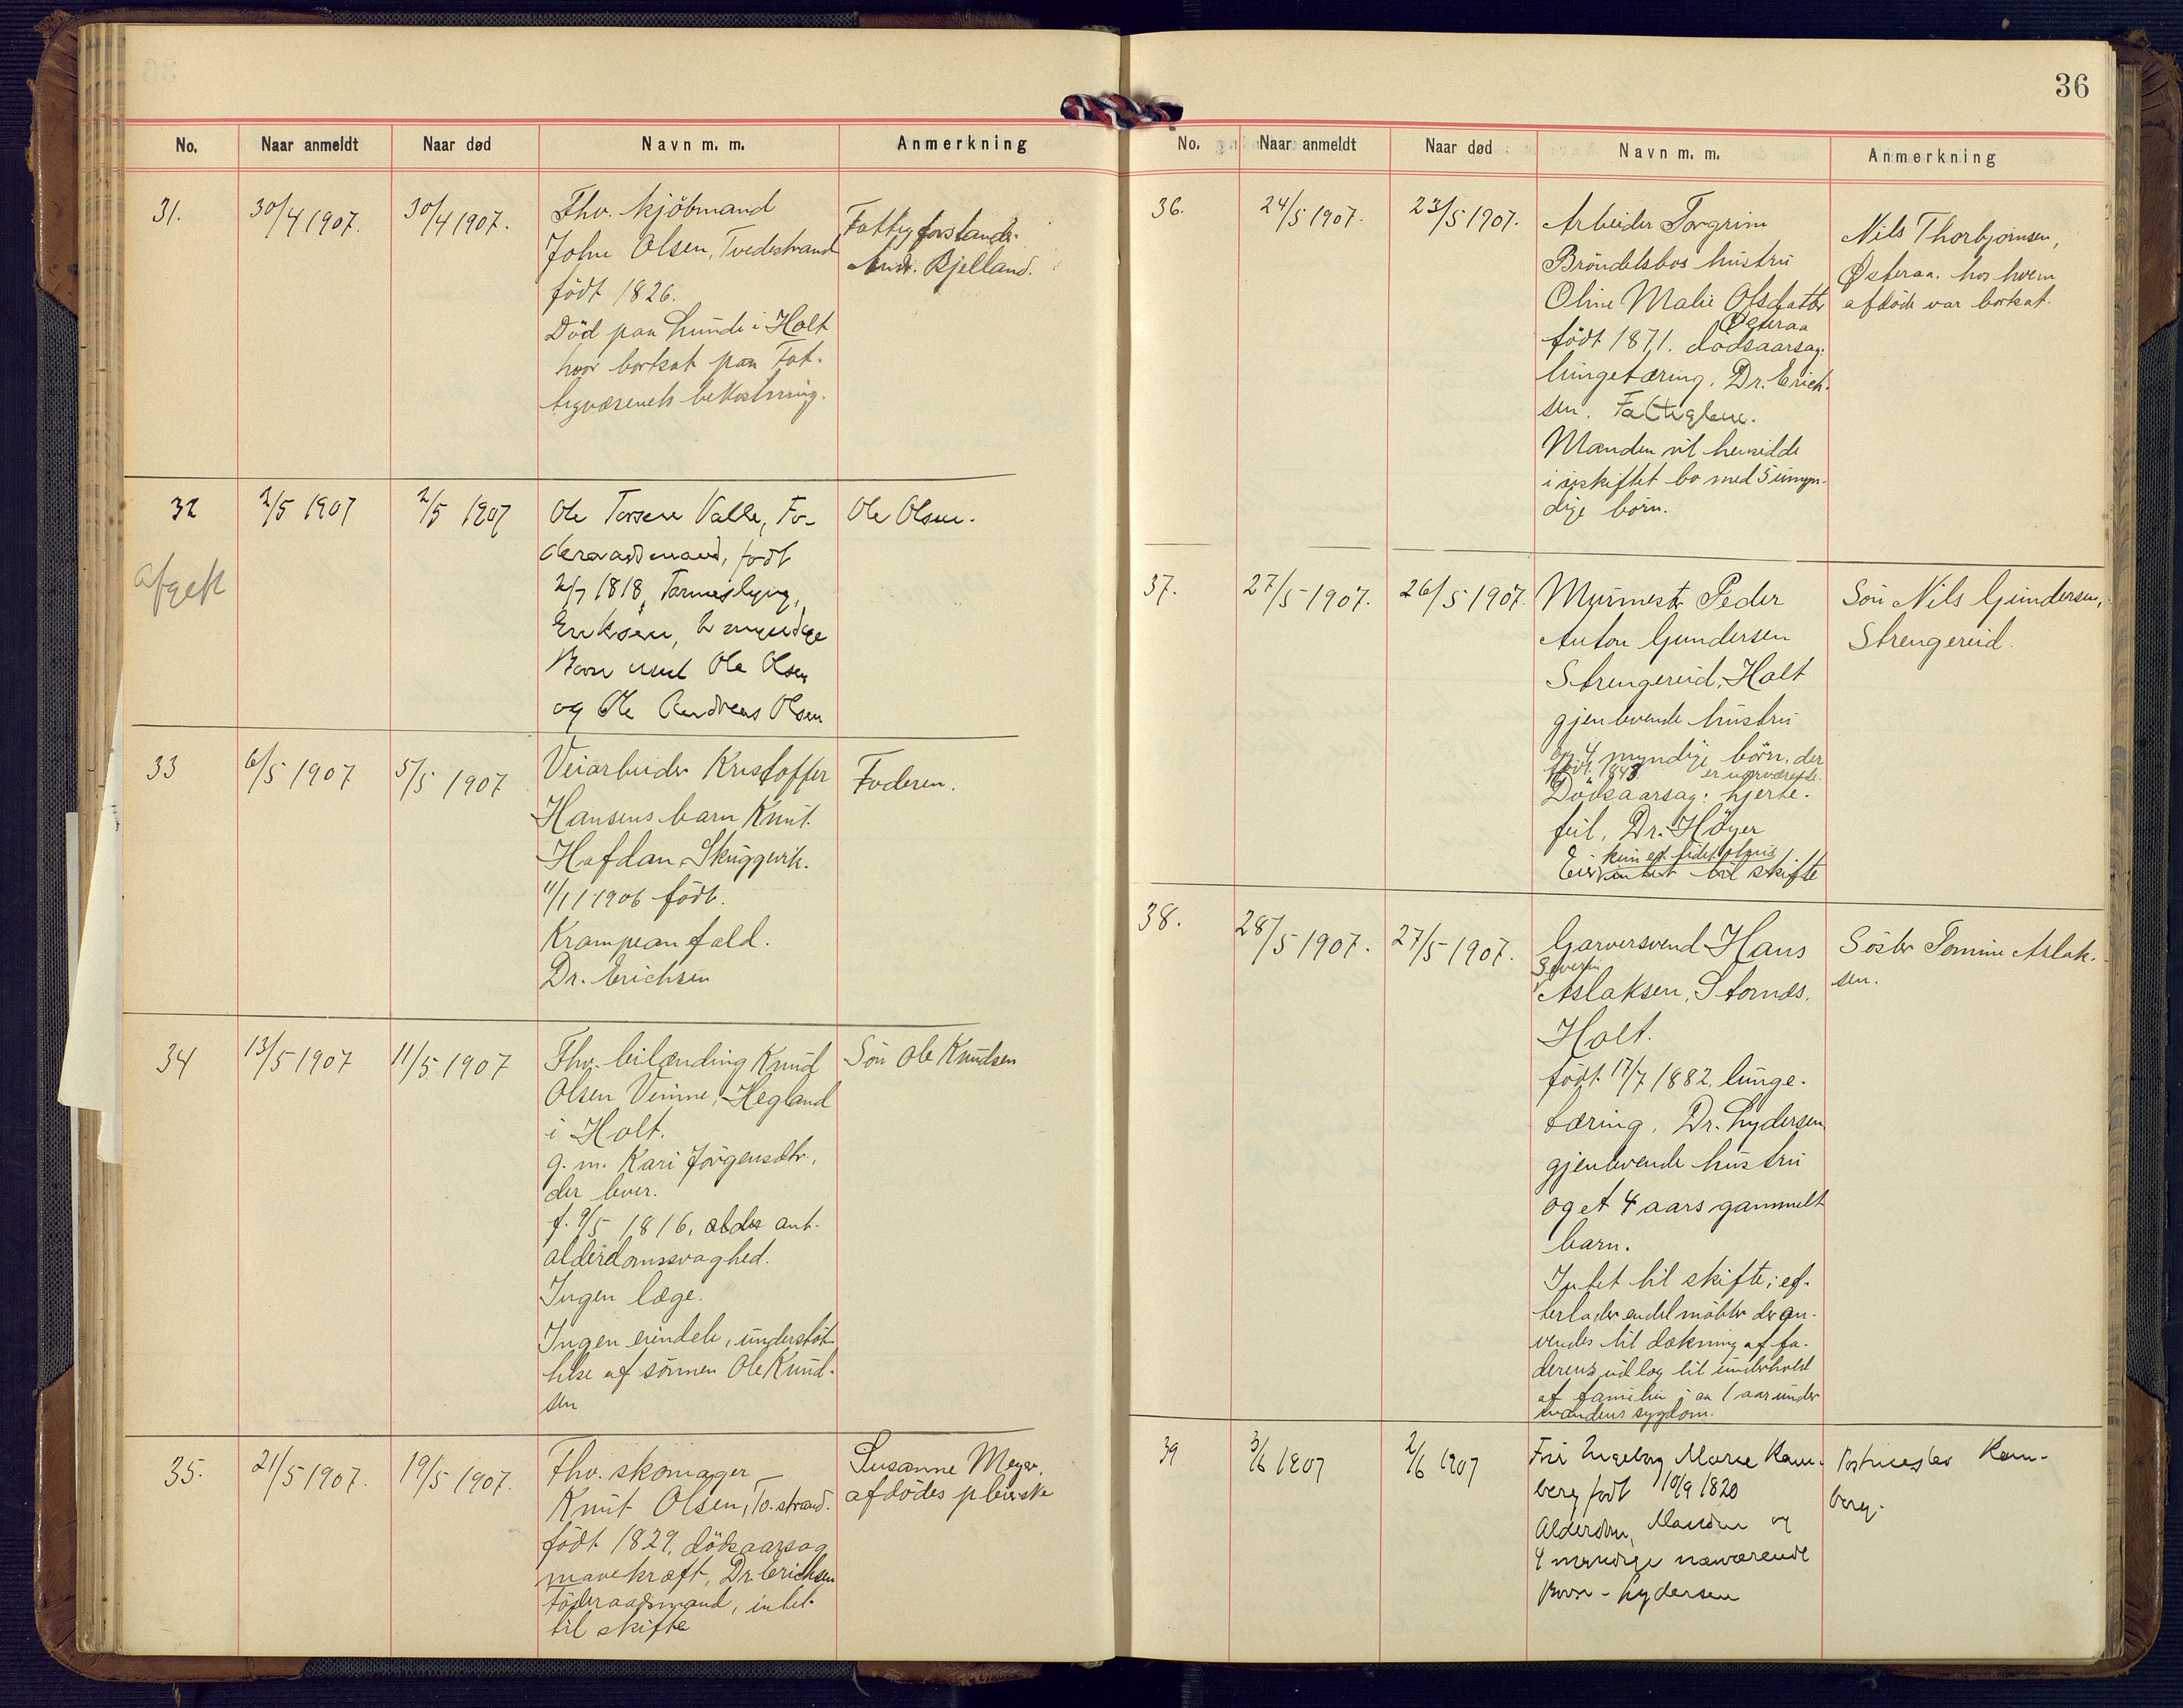 36
No. Naar anmeldt Naar død Navn m. m. Anmerkning
31. 30/4 1907. 30/4 1907.
Fhv. kjöbmand
John Olsen, Tvedestrand
födt 1826.
Död paa Lunde i Holt
hvor bortsat paa Fat-
tigvæsenets bekostning.
Fattigforstander
Andr. Bjelland.
32 2/5 1907 2/5 1907
afgeh
Ole Tarsen Valle, Fø-
deraadsmand, født
1818,
Eriksen, 2 myndige
Børn med Ole Olsen
og Ole Andreas Olsen
Ole Olsen.
33 6/5 1907 5/5 1907
Veiarbeider Kristoffer
Hansens barn Knut
Hafdan, Skuggevik.
11/11 1906 födt.
Krampeanfald.
Dr. Erichsen
Faderen.
34 13/5 1907 11/5 1907
Fhv. leilænding Knud
Olsen Vimme, Hegland
i Holt.
g. m. Kari Jörgensdtr.,
der lever.
f. 9/5 1816,
alderdomssvaghed.
Ingen læge.
Ingen eiendele, understöt-
telse af sönnen Ole Knud-
sen
Sön Ole Knudsen
35. 21/5 1907. 19/5 1907.
Fhv. skomager
Knut Olsen, Tv.strand.
födt 1829, dödsaarsag
mavekræft, Dr. Erichsen
Föderaadsmand, intet
til skifte
Susanne Meyer,
afdödes pleierske
No. Naar anmeldt Naar død Navn m. m. Anmerkning
36. 24/5 1907. 23/5 1907.
Arbeider Torgrim
Bröndelsbos hustru
Oline Malie Olsdatter
Østeraa
födt 1871. dödsaarsag:
lungetæring. Dr. Erich-
sen. Fattiglem.
Manden vil hensidde
i uskiftet bo med 5 umyn-
dige börn.
Nils Thorbjørnsen,
Østeraa. hos hvem
afdöde var bortsat.
37. 27/5 1907. 26/5 1907.
Murmester Peder
Anton Gundersen
Strengereid, Holt
gjenlevende hustru
og 4 myndige börn, der
födt 1848 er nærværende.
Dödsaarsag: hjerte-
feil, Dr. Höyer
kun et lidet
Eier intet til skifte
Sön Nils Gundersen,
Strengereid.
38. 28/5 1907. 27/5 1907.
Garversvend Hans
Severin
Aslaksen, Stornæs,
Holt.
födt 17/7 1882. lunge-
tæring. Dr. Lydersen
gjenlevende hustru
og et 4 aars gammelt
barn.
Intet til skifte; ef-
terlader endel möbler der an-
vendes til dækning af fa-
derens udlæg til underhold
af familien i ca 1 aar under
mandens sygdom.
Söster Tomine Aslak-
sen.
39 3/6 1907 2/6 1907
Fru Ingeborg Marie Kam-
berg født 10/9 1820
Alderdom, Manden og
4 myndige nærværende
Børn - Lydersen
Postmester Kam-
berg.